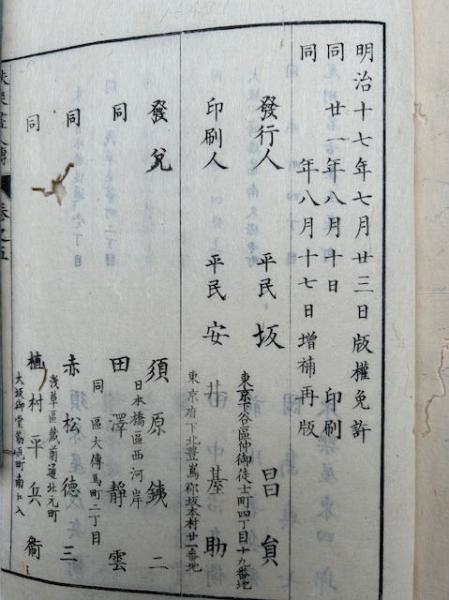 明治十七年七月廿三日版權免許
同 廿一年八月十日 印刷
同 年八月十七日增補再版
東京下谷區仲御徒士町四丁目十九番地
發行人 平民 坂 昌員
東京府下北豊嶌郡坂本村廿一番地
印刷人 平民 安井基助
日本橋區西河岸
發兌 須原銕二
同 區大傳馬町二丁目
同 田澤靜雲
淺草區藏前通北元町
同 赤松德三
大坂御堂筋順町南ヘ入
同 植村平兵衞
卷之五